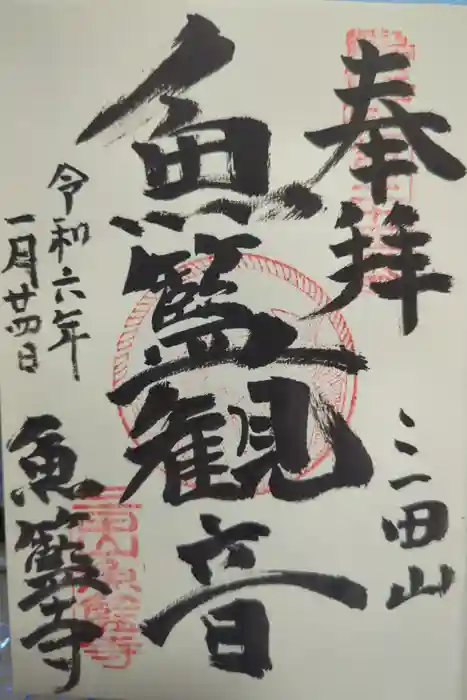 奉拝
三田山
魚籃観音
令和六年
一月廿四日
魚籃寺